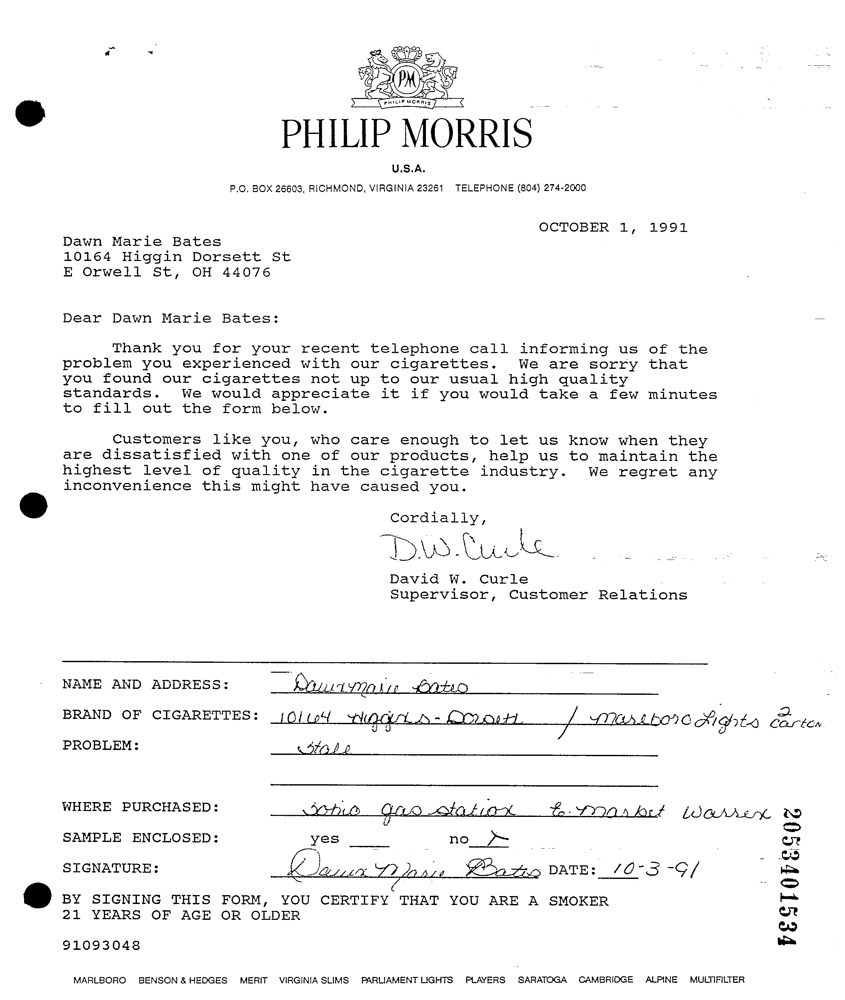 PM
PHILIP MORRIS
PHILIP MORRIS
U.S.A.
P.O. BOX 26603, RICHMOND, VIRGINIA 23261 TELEPHONE (804) 274-2000
OCTOBER 1, 1991
Dawn Marie Bates
10164 Higgin Dorsett St
E Orwell St, OH 44076
Dear Dawn Marie Bates:
Thank you for your recent telephone call informing us of the
problem you experienced with our cigarettes. We are sorry that
you found our cigarettes not up to our usual high quality
standards. We would appreciate it if you would take a few minutes
to fill out the form below.
Customers like you, who care enough to let us know when they
are dissatisfied with one of our products, help us to maintain the
highest level of quality in the cigarette industry. We regret any
inconvenience this might have caused you.
Cordially,
D.W. Curle
David W. Curle
Supervisor, Customer Relations
NAME AND ADDRESS: Dawn Marie Bates
BRAND OF CIGARETTES: 10164 Higgins-Dorsett / Marlboro Lights 2 Carton
PROBLEM: Stale
WHERE PURCHASED: Sohio gas station E. Market Warren
SAMPLE ENCLOSED: yes ____ no X
SIGNATURE: Dawn Marie Bates DATE: 10-3-91
BY SIGNING THIS FORM, YOU CERTIFY THAT YOU ARE A SMOKER
21 YEARS OF AGE OR OLDER
91093048
2053401534
MARLBORO BENSON & HEDGES MERIT VIRGINIA SLIMS PARLIAMENT LIGHTS PLAYERS SARATOGA CAMBRIDGE ALPINE MULTIFILTER